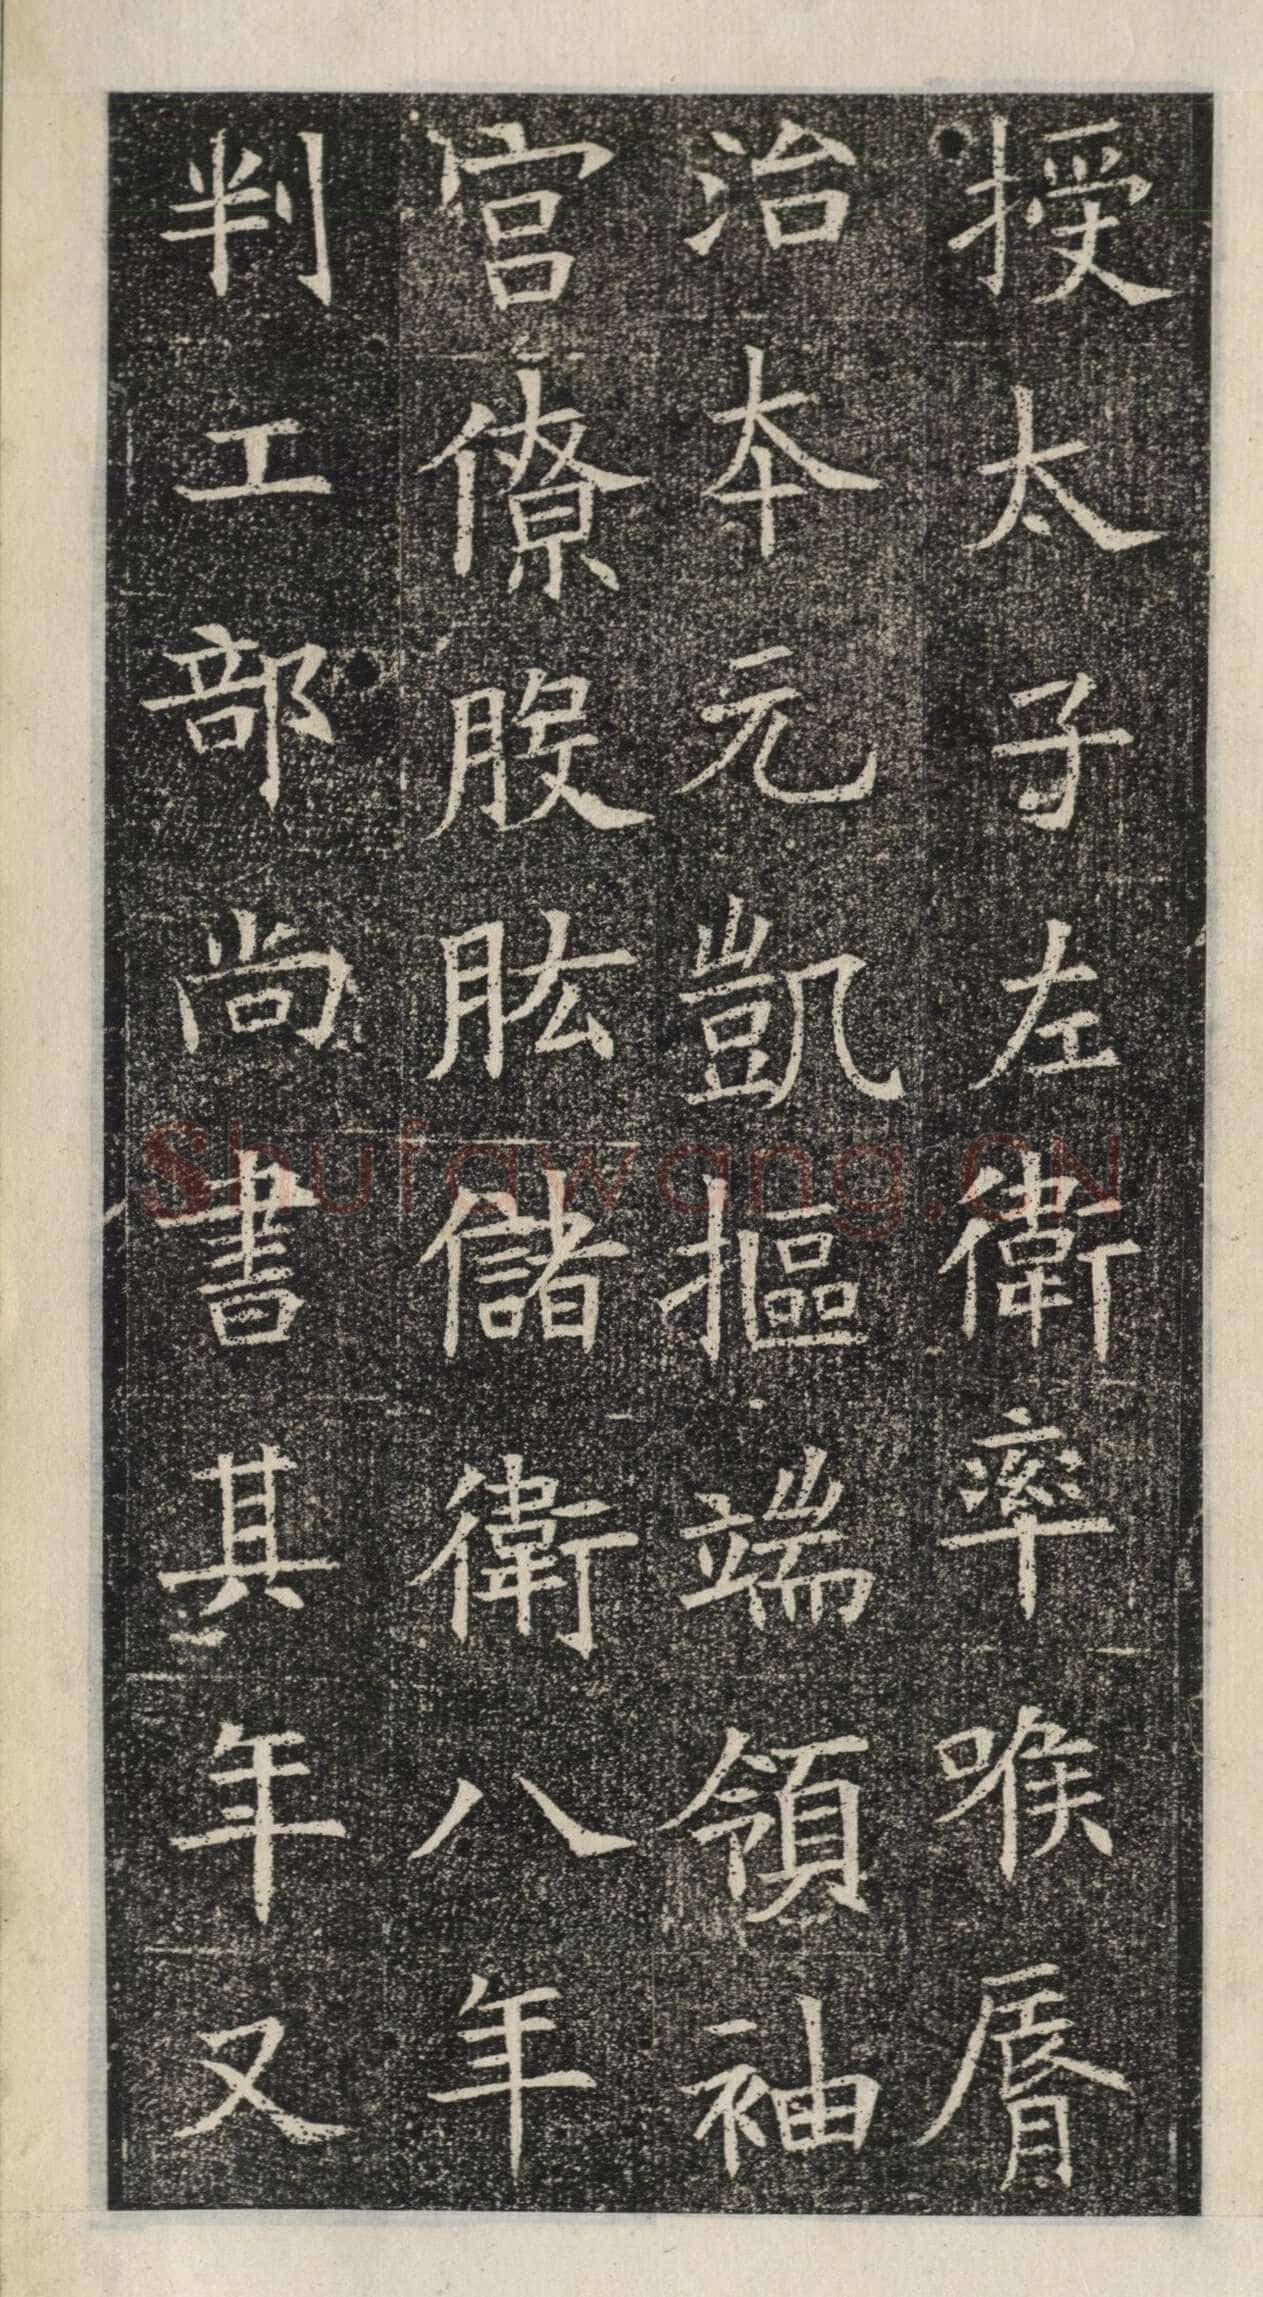 授太子左衛率喉脣
治本元凱摳端領袖
宮僚股肱儲衛八年
判工部尚書其年又
Shufawang.CN